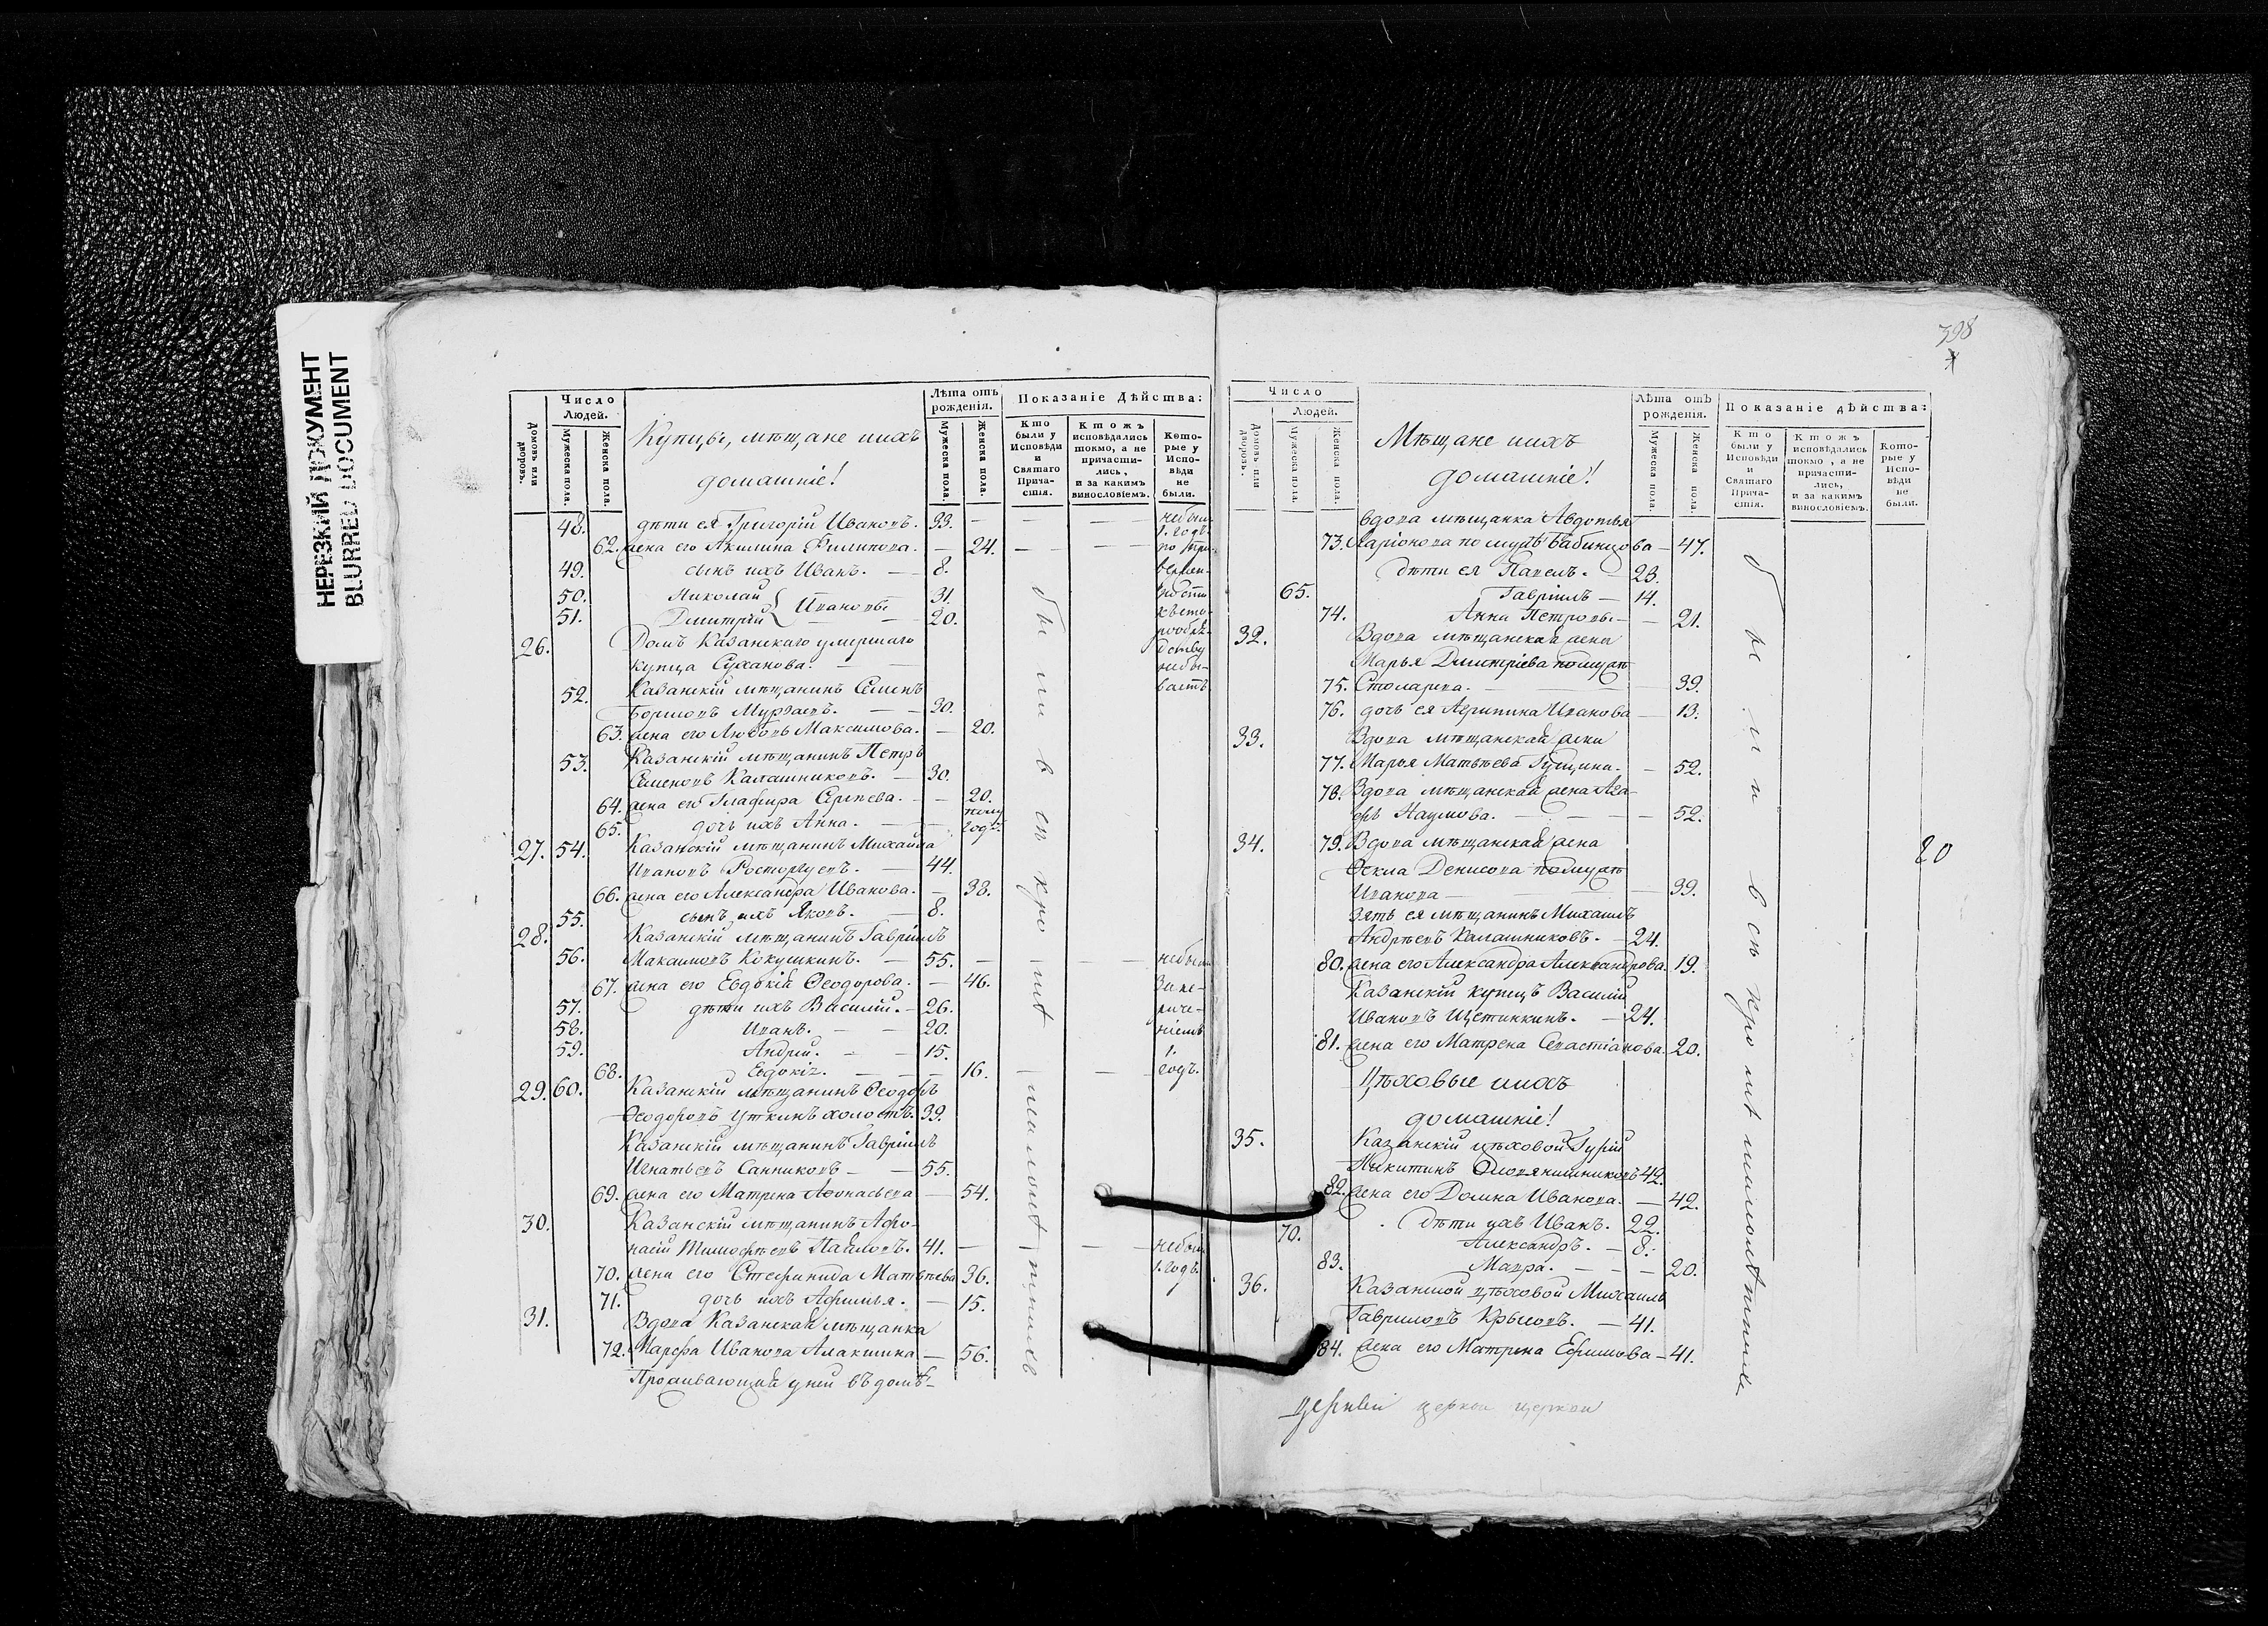 НЕРЕЗКИЙ ДОКУМЕНТ
BLURRED DOCUMENT
Число Людей.
Домовъ или дворовъ.
Мужеска пола.
Женска пола.
Купцы, мѣщане и ихъ
домашніе!
Лѣта отъ рожденія.
Мужеска пола.
Женска пола.
Показаніе Дѣйства:
Кто были у Исповѣди и Святаго Причастія.
Ктожъ исповѣдались токмо, а не причастились, и за какимъ винословіемъ.
Которые у Исповѣди не были.
48. дѣти ея Григорій Ивановъ. 33. — —
62. жена его Акилина Филипова. — 24. — —
49. сынъ ихъ Иванъ. — 8.
50. Николай } Ивановы 31.
51. Дмитрій 20.
26. Домъ Казанскаго умершаго
купца Суханова. —
52. Казанскій мѣщанинъ Семенъ
Мурзаевъ. — 30.
63. жена его Любовь Максимова. — 20.
53. Казанскій мѣщанинъ Петръ
Семеновъ Калашниковъ. — 30.
64. жена его Глафира Сергѣева. — 20.
65. дочь ихъ Анна. — полу
года.
27. 54. Казанскій мѣщанинъ Михайла
Ивановъ Расторгуевъ. — 44.
66. жена его Александра Иванова. — 38.
55. сынъ ихъ Яковъ. — 8.
28. Казанскій мѣщанинъ Гавріилъ
56. Максимовъ Кокушкинъ. — 55. —
67. жена его Евдокія Ѳеодорова. — 46.
57. дѣти ихъ Василій. — 26.
58. Иванъ. — 20.
59. Андрей. — 15.
68. Евдокія. — 16.
29. 60. Казанскій мѣщанинъ Ѳеодоръ
Ѳеодоровъ Уткинъ холостъ. 39.
Казанскій мѣщанинъ Гавріилъ
Игнатьевъ Санниковъ — 55.
69. жена его Матрена Аѳонасьева — 54.
30. Казанскій мѣщанинъ Афо-
насій Тимофѣевъ Павловъ. 41. —
70. жена его Стефанида Матвѣева 36.
71. дочь ихъ Афимья. — 15.
31. Вдова Казанская мѣщанка
72. Марфа Иванова Алакшина — 56.
Проживающія у ней въ домѣ
были въ с. кро
не были
1. годъ
не бы-
ваетъ
не были
1.
годъ.
не были
1. годъ.
398
Число Людей.
Домовъ или дворовъ.
Мужеска пола.
Женска пола.
Мѣщане и ихъ
домашніе!
Лѣта отъ рожденія.
Мужеска пола.
Женска пола.
Показаніе дѣйства:
Кто были у Исповѣди и Святаго Причастія.
Ктожъ исповѣдались токмо, а не причастились, и за какимъ винословіемъ.
Которые у Исповѣди не были.
вдова мѣщанка Авдотья
73. Ларіонова по мужѣ Бабинцова — 47.
дѣти ея Павелъ. — 23.
65. Гавріилъ — 14.
74. Анна Петровы — 21.
32. Вдова мѣщанская жена
Марья Дмитріева по мужѣ
75. Столярова. — 39.
76. дочь ея Агрипина Иванова — 13.
33. Вдова мѣщанская жена
77. Марья Матвѣева Гущина. — 52.
78. Вдова мѣщанская жена Ага-
фья Наумова. — 52.
34. 79. Вдова мѣщанская жена
Ѳекла Денисова по мужѣ
Иванова — 39.
Зять ея мѣщанинъ Михаилъ
Андрѣевъ Калашниковъ. — 24.
80. жена его Александра Александрова. 19.
Казанскій купецъ Василій
Ивановъ Щетинкинъ. — 24.
81. жена его Матрена Севастіанова. 20.
Цѣховые и ихъ
домашніе!
35. Казанскій цѣховой Гурій
Никитинъ 42.
82. жена его Домна Иванова. — 42.
70. дѣти ихъ Иванъ. 22.
Александръ. — 8.
83. Мавра. — 20.
36. Казанской цѣховой Михаилъ
Гавриловъ Крысовъ. — 41.
84. жена его Матрена Ефимова — 41.
были въ с.
80
церкви церкви